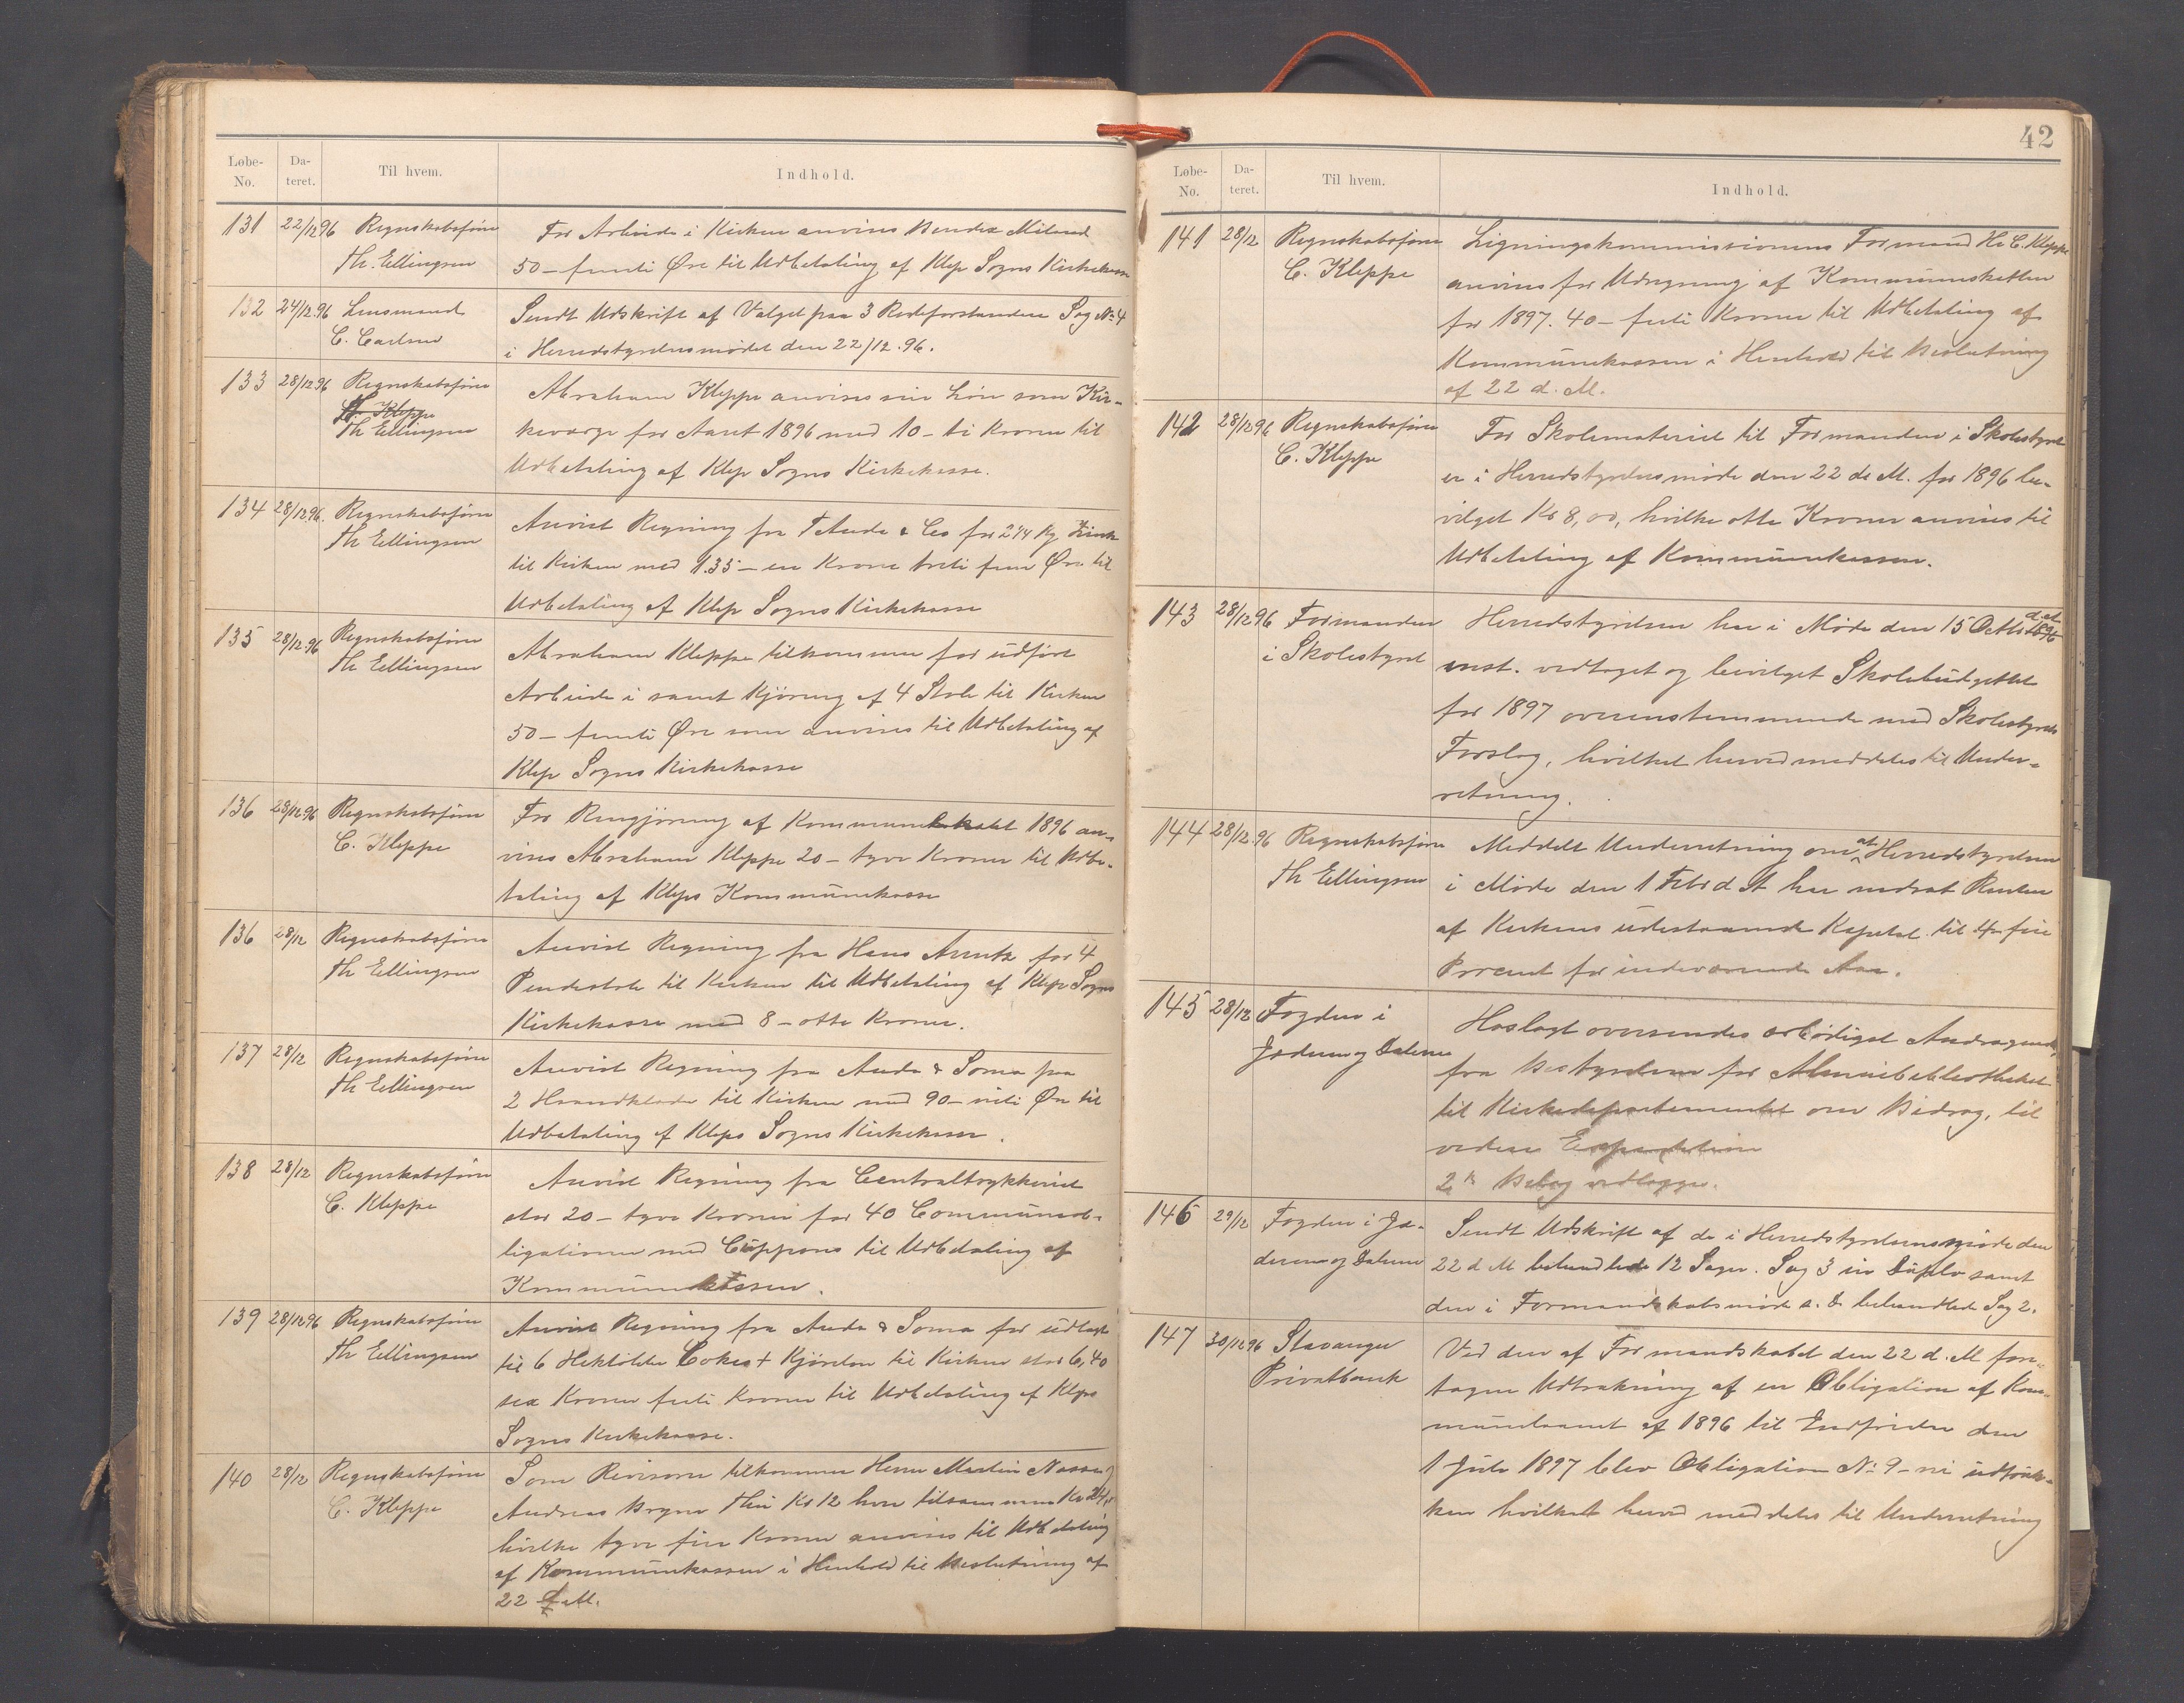 Løbe-No. Da-teret. Til hvem. Indhold.
131 22/12 96 Regnskabsfører Th. Ellingsen
For Arbeide i Kirken anvises Bendix Mileund
50 – femti Øre til Udbetaling af Klep Sogns Kirkekasse
132 24/12.96 Lensmand C. Carlsen
Sendt Udskrift af Valget paa 3 Rodeforstandere Sag No 4
i Herredstyrelsesmødet den 22/12.96.
133 28/12 96 Regnskabsfører C. Kleppe Th Ellingsen
Abraham Kleppe anvises sin Løn som Kir-
keværge for Aaret 1896 med 10 – ti Kroner til
Udbetaling af Klep Sogns Kirkekasse.
134 28/12 96. Regnskabsfører Th Ellingsen
Anvist Regning fra T Aude & Co for 2 1/4 Kg Zink
til Kirken med 1.35 – en Krone treti fem Øre til
Udbetaling af Klep Sogns Kirkekasse
135 28/12.96 Regnskabsfører Th Ellingsen
Abraham Kleppe tilkommer for udført
Arbeide i samt Kjøring af 4 Stole til Kirken
50 – femti Øre som anvises til Udbetaling af
Klep Sogns Kirkekasse
136 28/12 96 Regnskabsfører C. Kleppe
For Rengjøring af Kommunelokalet 1896 an-
vises Abraham Kleppe 20 – tyve Kroner til Udbe-
taling af Kleps Kommunekasse
136 28/12 Regnskabsfører Th Ellingsen
Anvist Regning fra Hans for 4
Pindestole til Kirken til Udbetaling af Klep Sogns
Kirkekasse med 8 – otte Kroner.
137 28/12 Regnskabsfører Th Ellingsen
Anvist Regning fra Aude & Soma paa
2 Haandklæder til Kirken med 90 – niti Øre til
Udbetaling af Kleps Sogns Kirkekasse.
138 28/12 Regnskabsfører C. Kleppe
Anvist Regning fra Centraltrykkeriet
stor 20 – tyve Kroner for 40 Communeob-
ligationer med Cuppons til Udbetaling af
Kommunekassen.
139 28/12 96 Regnskabsfører Th Ellingsen
Anvist Regning fra Aude & Soma for udlagt
til 6 Hektoliter Cokes + Kjørelon til Kirken stor 6,40
sex Kroner furti Kroner til Udbetaling af Kleps
Sogns Kirkekasse.
140 28/12 Regnskabsfører C. Kleppe
Som Revisorer tilkommer Herrer Martin
Andreas Bryne Thu Kr 12 hver tilsammen Kr 24,
hvilke tyve fire Kroner anvises til Udbetaling
af Kommunekassen i Henhold til Beslutning af
22 d M.
42
Løbe-No. Da-teret. Til hvem. Indhold.
141 28/12 Regnskabsfører C. Kleppe
Ligningskommissionens Formand Hr C. Kleppe
anvises for Udregning af Kommuneskatten
for 1897. 40 – furti Kroner til Udbetaling af
Kommunekassen i Henhold til Beslutning
af 22 d. M.
142 28/12 96 Regnskabsfører C. Kleppe
For Skolemateriel til Formanden i Skolestyret
er i Herredstyrelsesmøde den 22 ds M. for 1896 be-
vilget Kr 8,00, hvilke otte Kroner anvises til
Udbetaling af Kommunekassen.
143 28/12 96 Formanden i Skolestyret
Herredstyrelsen har i Møde den 15 Octbr 1896
enst. vedtaget og bevilget Skolebudgettet
for 1897 overenstemmende med Skolestyrets
Forslag, hvilket herved meddeles til Under-
retning.
144 28/12.96 Regnskabsfører Th Ellingsen
Meddelt Underretning om at Herredstyrelsen
i Møde den 1 Febr d A har nedsat Renten
af Kirkens udestaaende Kapital til 4 – fire
Procent for indeværende Aar.
145 28/12 Fogden i Jæderen og Dalerne
Hoslagt oversendes ærbødigst Andragende
fra Bestyrelsen for Almuebibliotheket
til Kirkedepartementet om Bidrag, til
videre Expedition
2de Bilag vedlægges.
146 29/12 Fogden i Jæ-deren og Dalerne
Sendt Udskrift af de i Herredstyrelsesmøde den
22 d M behandlede 12 Sager. Sag 3 in Duplo samt
den i Formandskabsmøde s. D. behandlede Sag 2.
147 30/12 96 Stavanger Privatbank
Ved den af Formandskabet den 22 d. M fore-
tagne Udtrækning af en Obligation af Kom-
munelaanet af 1896 til Indfrielse den
1 Juli 1897 blev Obligation No 9 – ni udtruk-
ken hvilket herved meddeles til Underretning